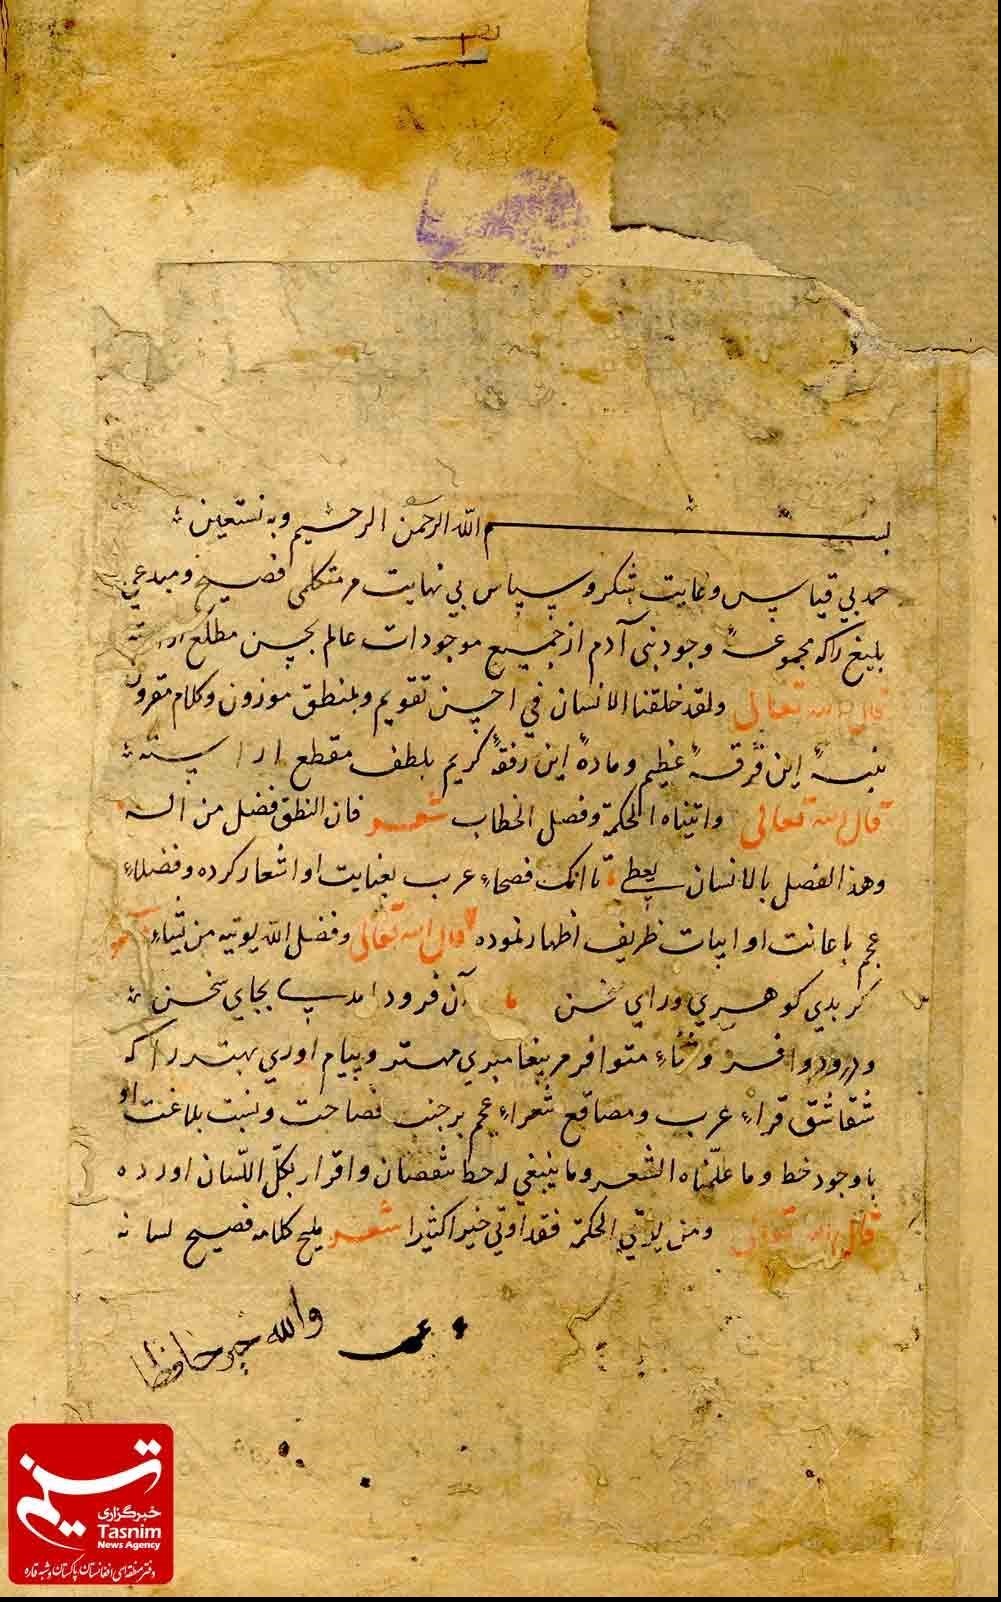 بسم الله الرحمن الرحیم وبه نستعین
حمد بی قیاس وغایت شکر وسپاس بی نهایت مر متکلمی فصیح ومبدعی
بلیغ را که مجموعۀ وجود بنی آدم از جمیع موجودات عالم بحسن مطلع
قال الله تعالی ولقد خلقنا الانسان في احسن تقویم وبمنطق موزون وکلام مقرون
این فرقۀ عظیم ومادۀ این رفقۀ کریم بلطف مقطع اراسته
قال الله تعالی واتیناه الحکمة وفصل الخطاب شعر فان النطق فضل من اله
وهذا الفصل بالانسان یعطی تا انک فصحاء عرب بغنایت او اشعار کرده وفضلاء
عجم باعانت او ابیات ظریف اظهار نموده قال الله تعالی وفضل الله یوتیه من یشاء
کر بدی کوهری ورای سخن آن فرود امدی بجای سخن
ودرود وافر وثناء متوافر مر پیغامبری مهتر وپیام اوری بهتر را که
شقاشق قراء عرب ومصاقع شعراء عجم برجنب فصاحت ونسبت بلاغت او
باوجود خط وما علمناه الشعر وما ینبغي له خط نقصان واقرار بکل اللسان اورده
قال الله تعالی ومن یؤتي الحکمة فقد اوتي خیرا کثیرا شعر ملیح کلامه فصیح لسانه
والله خیر حافظا
تسنیم
خبرگزاری
Tasnim
News Agency
دفتر منطقه ای افغانستان پاکستان و شبه قاره